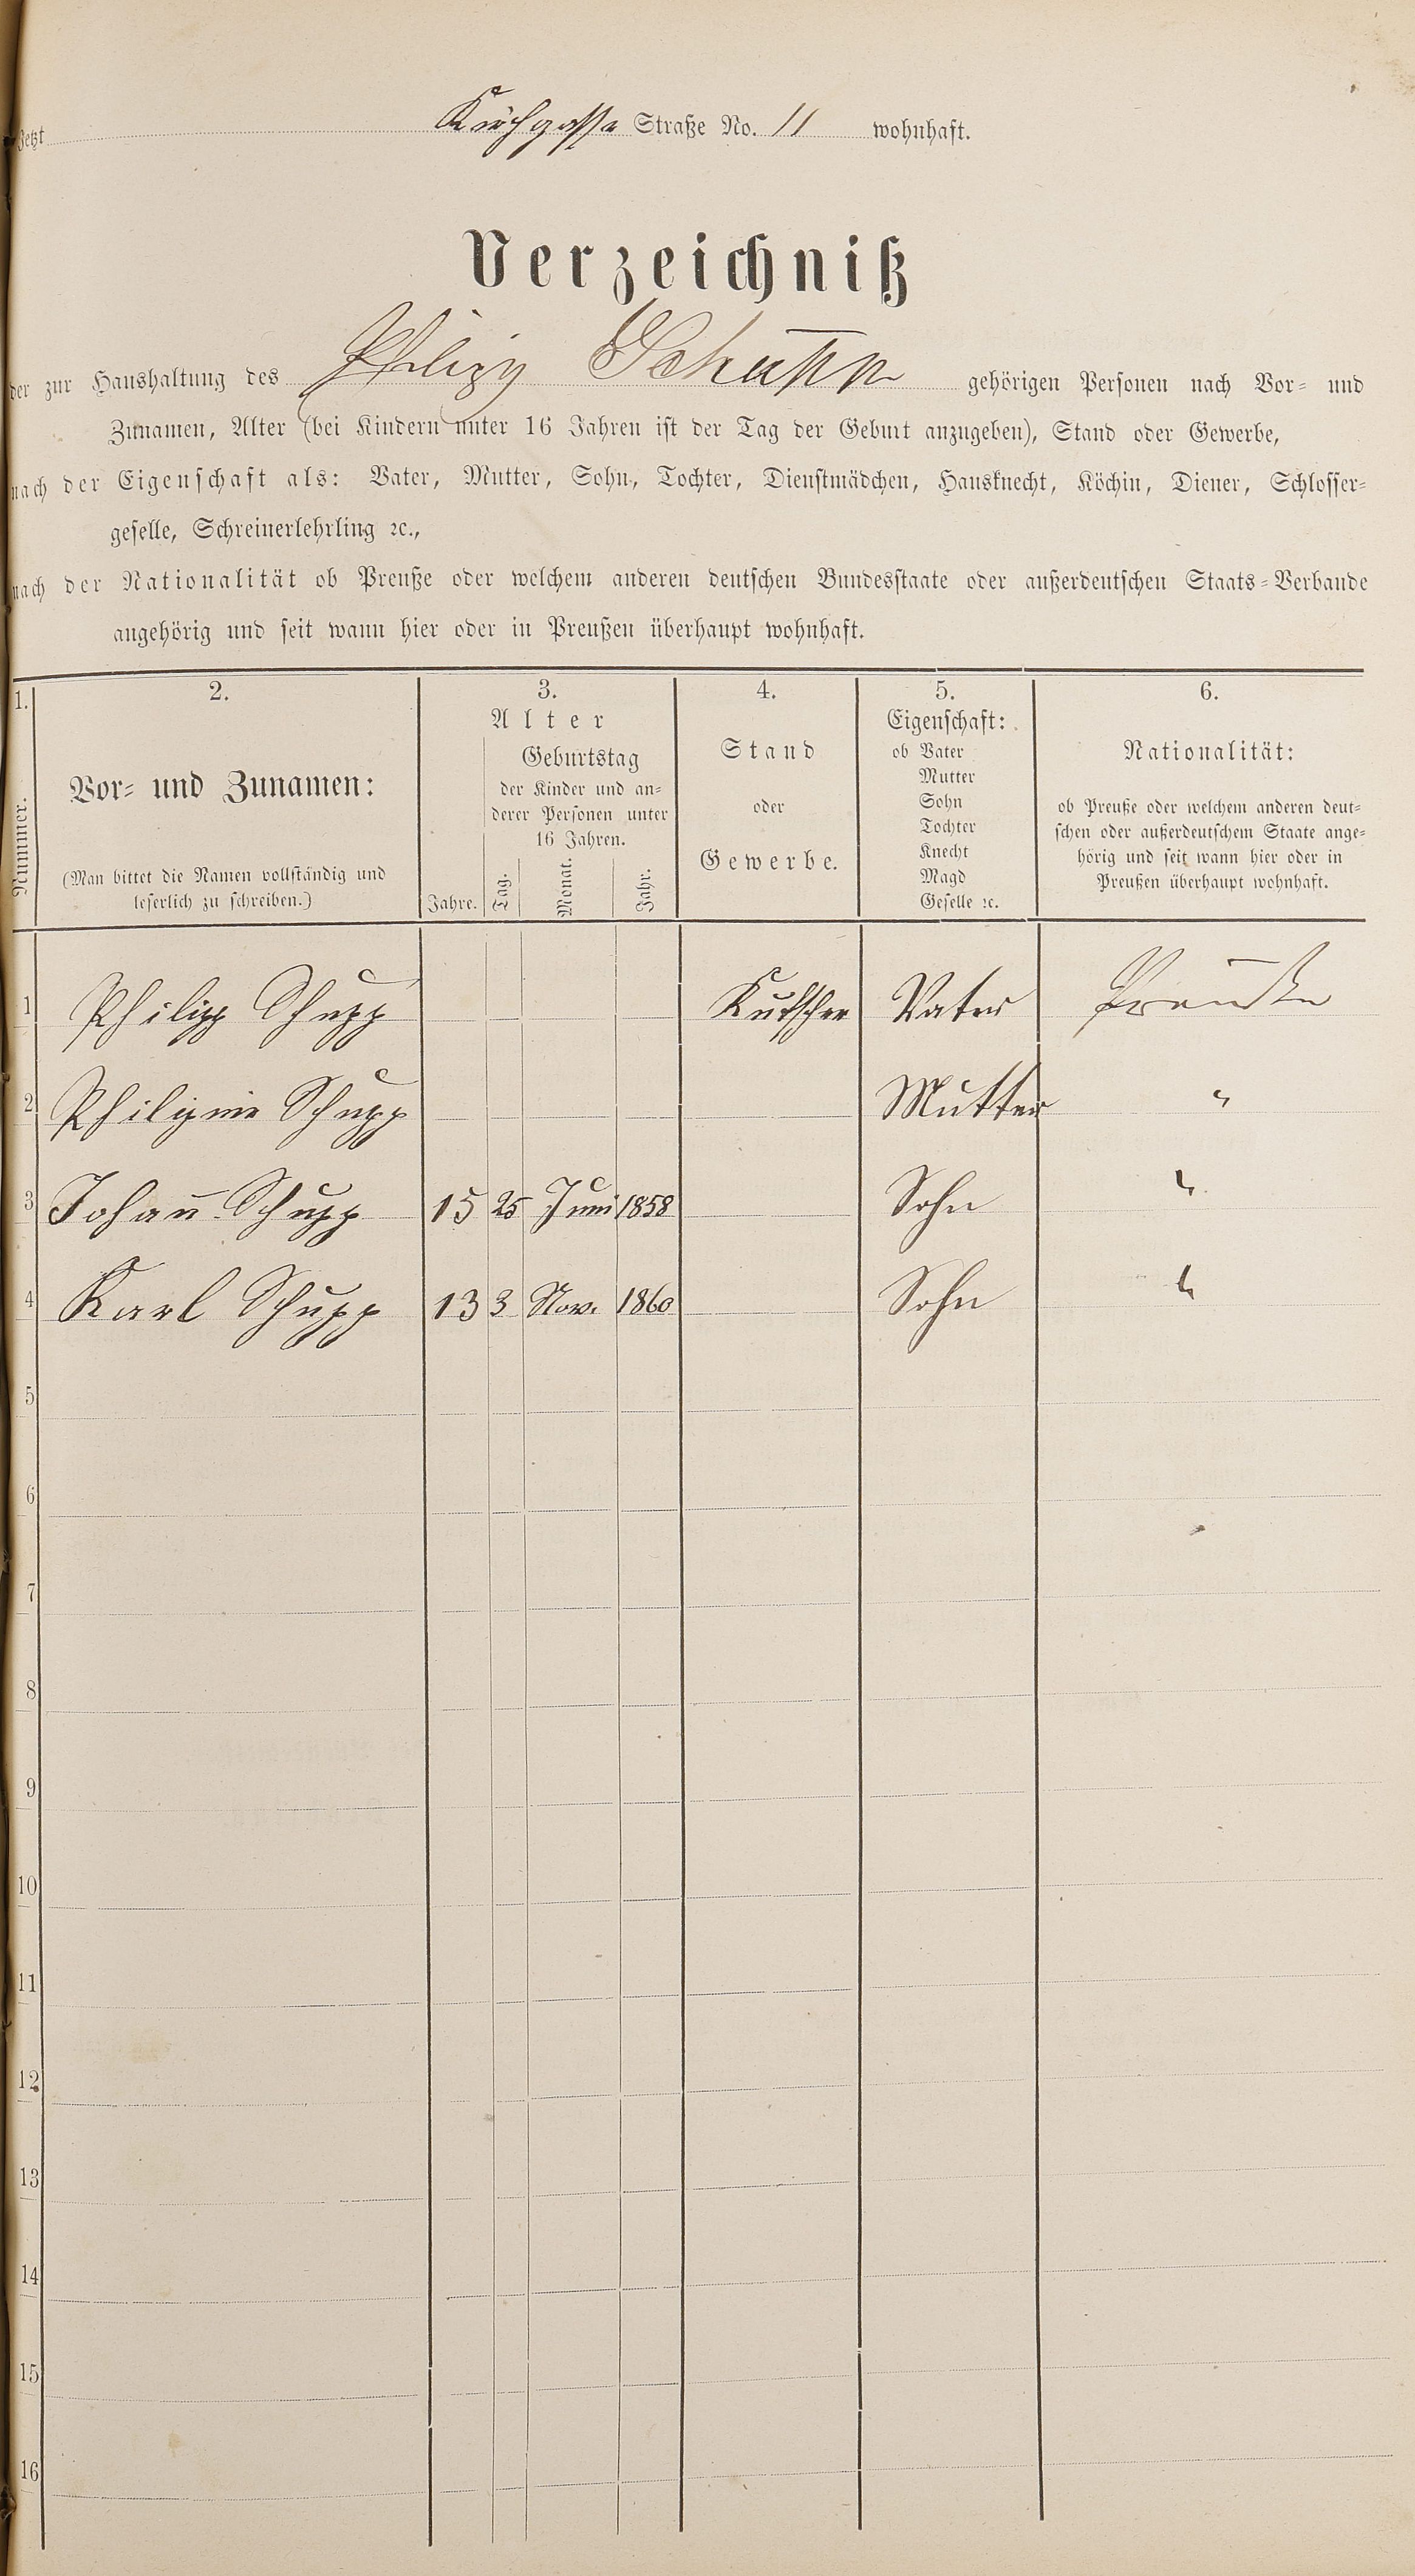 Jetzt Kirchgasse Straße No. 11 wohnhaft.
Verzeichniß
der zur Haushaltung des Philipp Schupp gehörigen Personen nach Vor- und
Zunamen, Alter (bei Kindern unter 16 Jahren ist der Tag der Geburt anzugeben), Stand oder Gewerbe,
nach der Eigenschaft als: Vater, Mutter, Sohn, Tochter, Dienstmädchen, Hausknecht, Köchin, Diener, Schlosser-
geselle, Schreinerlehrling ꝛc.,
nach der Nationalität ob Preuße oder welchem anderen deutschen Bundesstaate oder außerdeutschen Staats-Verbande
angehörig und seit wann hier oder in Preußen überhaupt wohnhaft.
1.
Nummer.
2.
Vor- und Zunamen:
(Man bittet die Namen vollständig und
leserlich zu schreiben.)
3.
Alter
Jahre.
Geburtstag
der Kinder und an-
derer Personen unter
16 Jahren.
Tag. Monat. Jahr.
4.
Stand
oder
Gewerbe.
5.
Eigenschaft:
ob Vater
Mutter
Sohn
Tochter
Knecht
Magd
Geselle ꝛc.
6.
Nationalität:
ob Preuße oder welchem anderen deut-
schen oder außerdeutschem Staate ange-
hörig und seit wann hier oder in
Preußen überhaupt wohnhaft.
1 Philipp Schupp Kutscher Vater Preuße
2 Philipine Schupp Mutter "
3 Johan̄ Schupp 15 25 Juni 1858 Sohn "
4 Karl Schupp 13 3 Nov. 1860 Sohn "
5
6
7
8
9
10
11
12
13
14
15
16